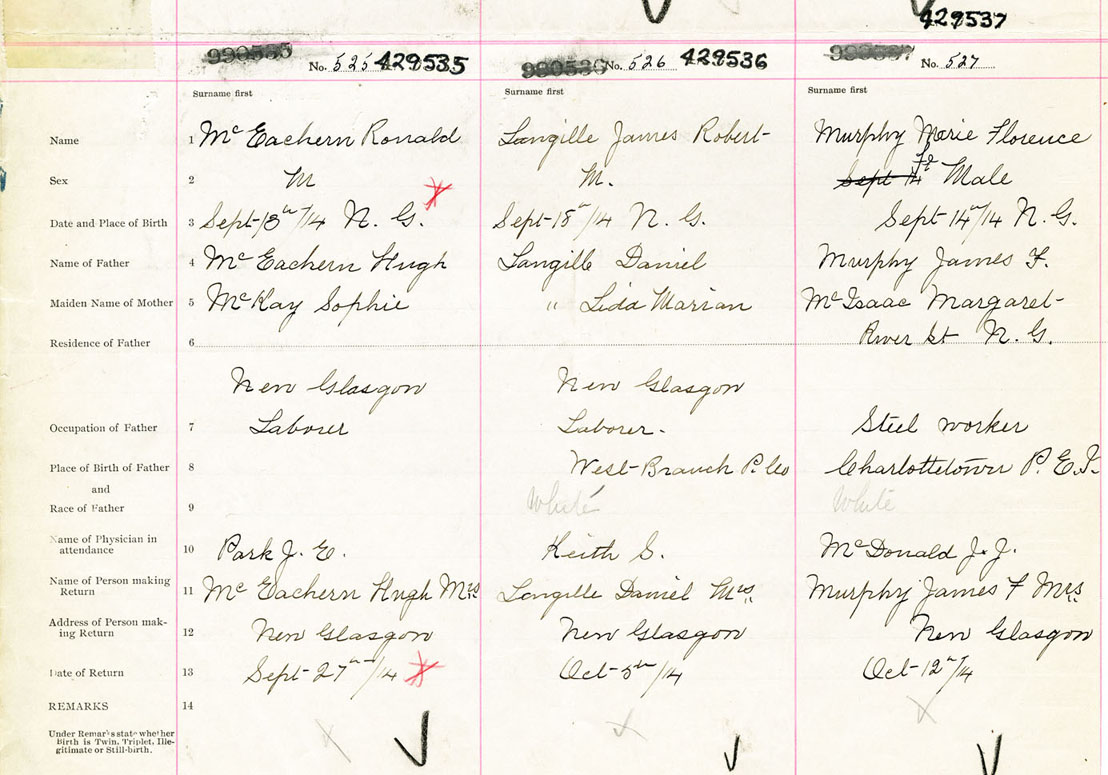 429537
No. 525 429535 No. 526 429536 No. 527
Surname first Surname first Surname first
Name 1 McEachern Ronald Langille James Robert Murphy Marie Florence
Sex 2 M M. Sept 14 Fe Male
Date and Place of Birth 3 Sept 18th/14 N. G. Sept 18th/14 N. G. Sept 14th/14 N. G.
Name of Father 4 McEachern Hugh Langille Daniel Murphy James F.
Maiden Name of Mother 5 McKay Sophie " Lida Marian McIsaac Margaret
Residence of Father 6 River St N. G.
New Glasgow New Glasgow
Occupation of Father 7 Laborer Laborer. Steel worker
Place of Birth of Father 8 West Branch P. Co Charlottetown P. E. I.
and
Race of Father 9 White White
Name of Physician in
attendance 10 Park J. E. Keith S. McDonald J. J.
Name of Person making
Return 11 McEachern Hugh Mrs Langille Daniel Mrs. Murphy James F Mrs
Address of Person mak-
ing Return 12 New Glasgow New Glasgow New Glasgow
Date of Return 13 Sept 27th/14 Oct 5th/14 Oct 12th/14
REMARKS 14
Under Remarks state whether
Birth is Twin, Triplet, Ille-
gitimate or Still-birth.